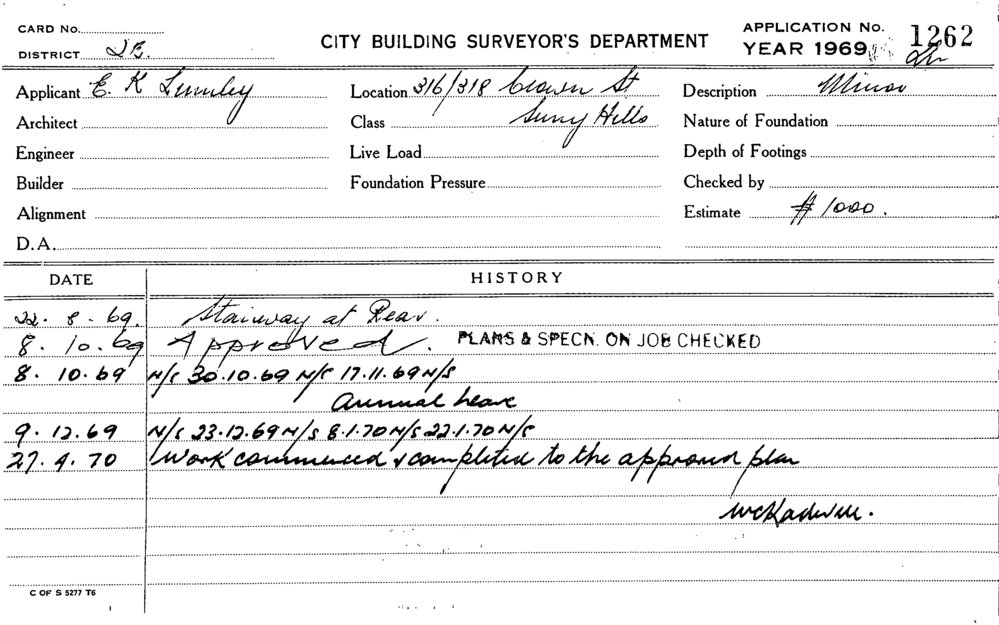 CARD No.
DISTRICT 2E.
CITY BUILDING SURVEYOR'S DEPARTMENT
APPLICATION No. 1262
YEAR 1969
Applicant E. K Lumley
Location 316/318 Crown St
Description Minor
Architect
Class Surry Hills
Nature of Foundation
Engineer
Live Load
Depth of Footings
Builder
Foundation Pressure
Checked by
Alignment
Estimate $1000.
D.A.
DATE HISTORY
22. 8 - 69. Stairway at Rear.
8. 10. 69 Approved. PLANS & SPECN. ON JOB CHECKED
8. 10. 69 N/S 30.10.69 N/S 17.11.69 N/S
Annual Leave
9. 12. 69 N/S 23.12.69 N/S 8.1.70 N/S 22.1.70 N/S
27. 4. 70 Work commenced & completed to the approved plan
C OF S 5277 T6